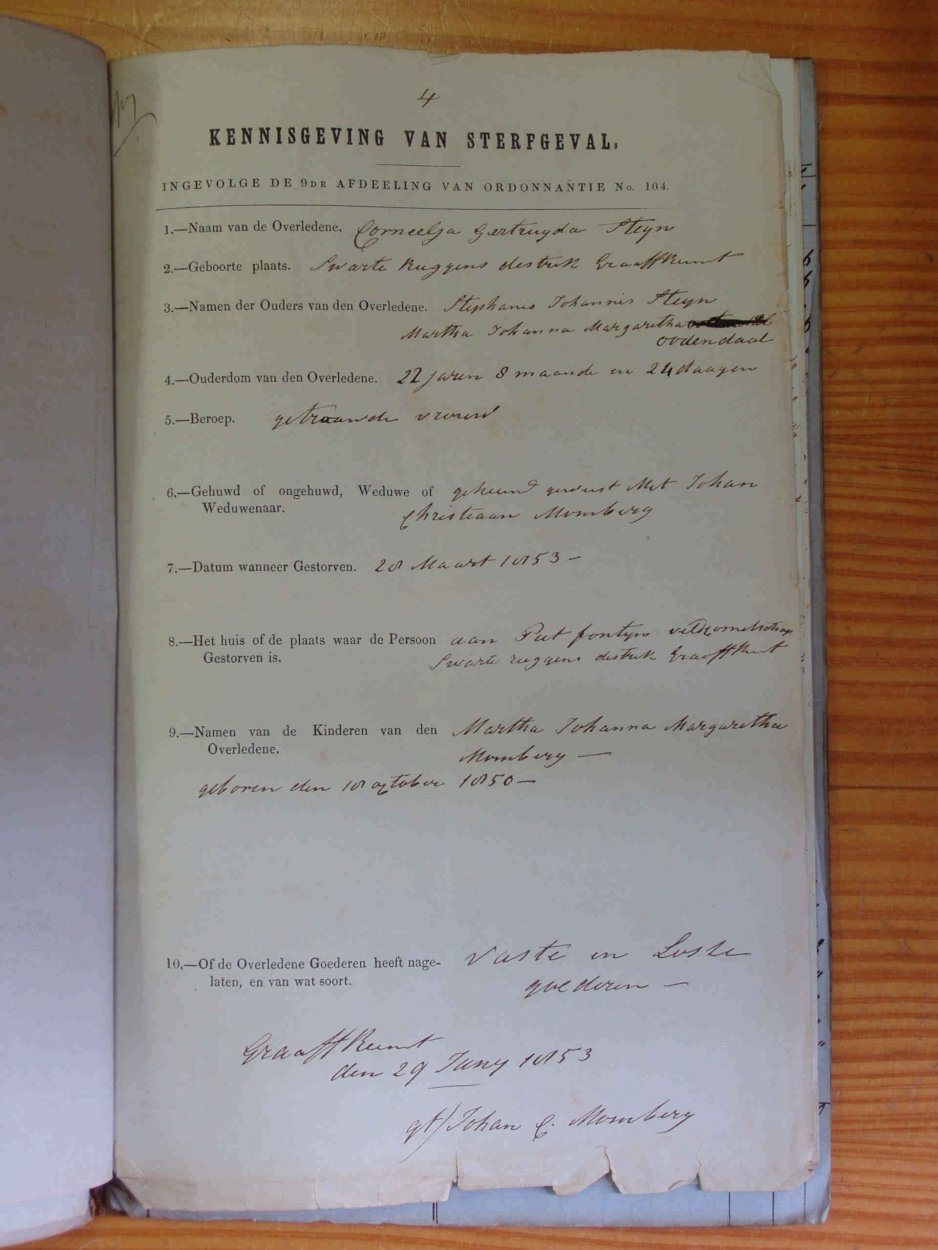 4
KENNISGEVING VAN STERFGEVAL.
INGEVOLGE DE 9DE AFDEELING VAN ORDONNANTIE No. 104.
1.—Naam van de Overledene. Corneelja Gertruyda Steyn
2.—Geboorte plaats. Swarte Ruggens destrik Graaff Reinet
3.—Namen der Ouders van den Overledene. Stephanis Johannis Steyn
Martha Johanna Margaretha
oodendaal
4.—Ouderdom van den Overledene. 22 jaren 8 maande en 24 daagen
5.—Beroep. getrauwde vrouw
6.—Gehuwd of ongehuwd, Weduwe of geheuwd geweest Met Johan
Weduwenaar. Christiaan Momberg
7.—Datum wanneer Gestorven. 28 Maart 1853 —
8.—Het huis of de plaats waar de Persoon aan Piet fontyn veldcornetschap
Gestorven is. Swarte ruggens destrik Graaff Reinet
9.—Namen van de Kinderen van den Martha Johanna Margaretha
Overledene. Momberg —
geboren den 18 october 1850 —
10.—Of de Overledene Goederen heeft nage- Vaste en Losse
laten, en van wat soort. goederen —
Graaff Reinet
den 29 Juny 1853
gt) Johan C. Momberg